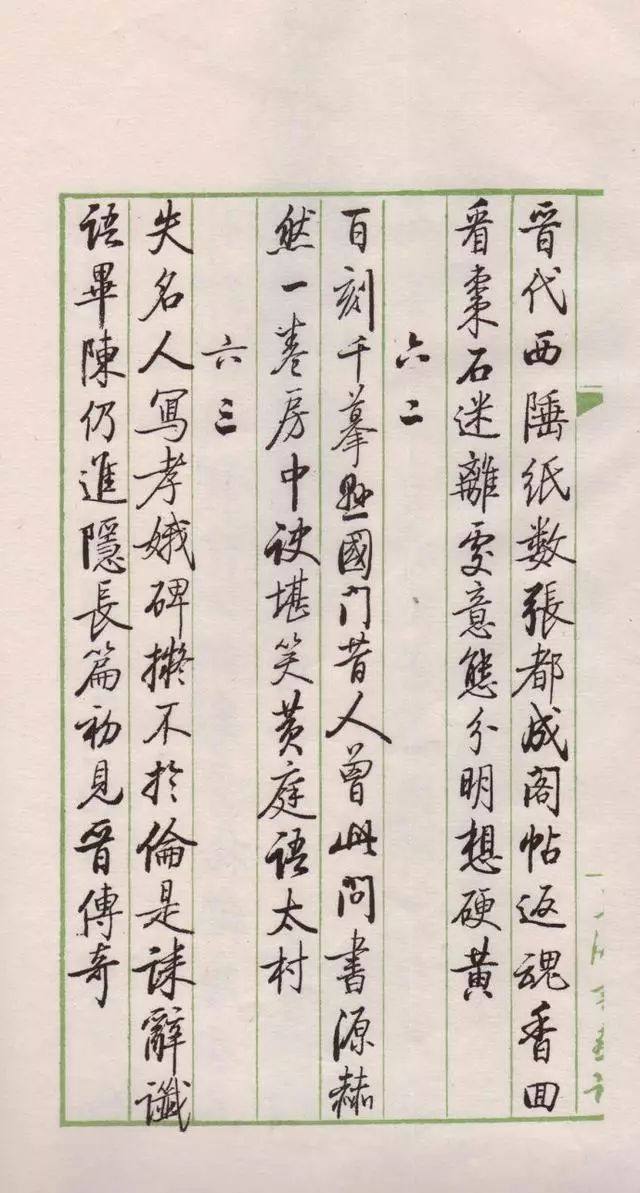 晉代西陲纸数張都成阁帖返魂香回
看棗石迷離處意態分明想硬黄
六二
百刻千摹懸國門昔人曾此問書源赫
然一卷房中诀堪笑黄庭语太村
六三
失名人寫孝娥碑擬不於倫是誄辭讖
語畢陳仍進隱長篇初見晉傳奇